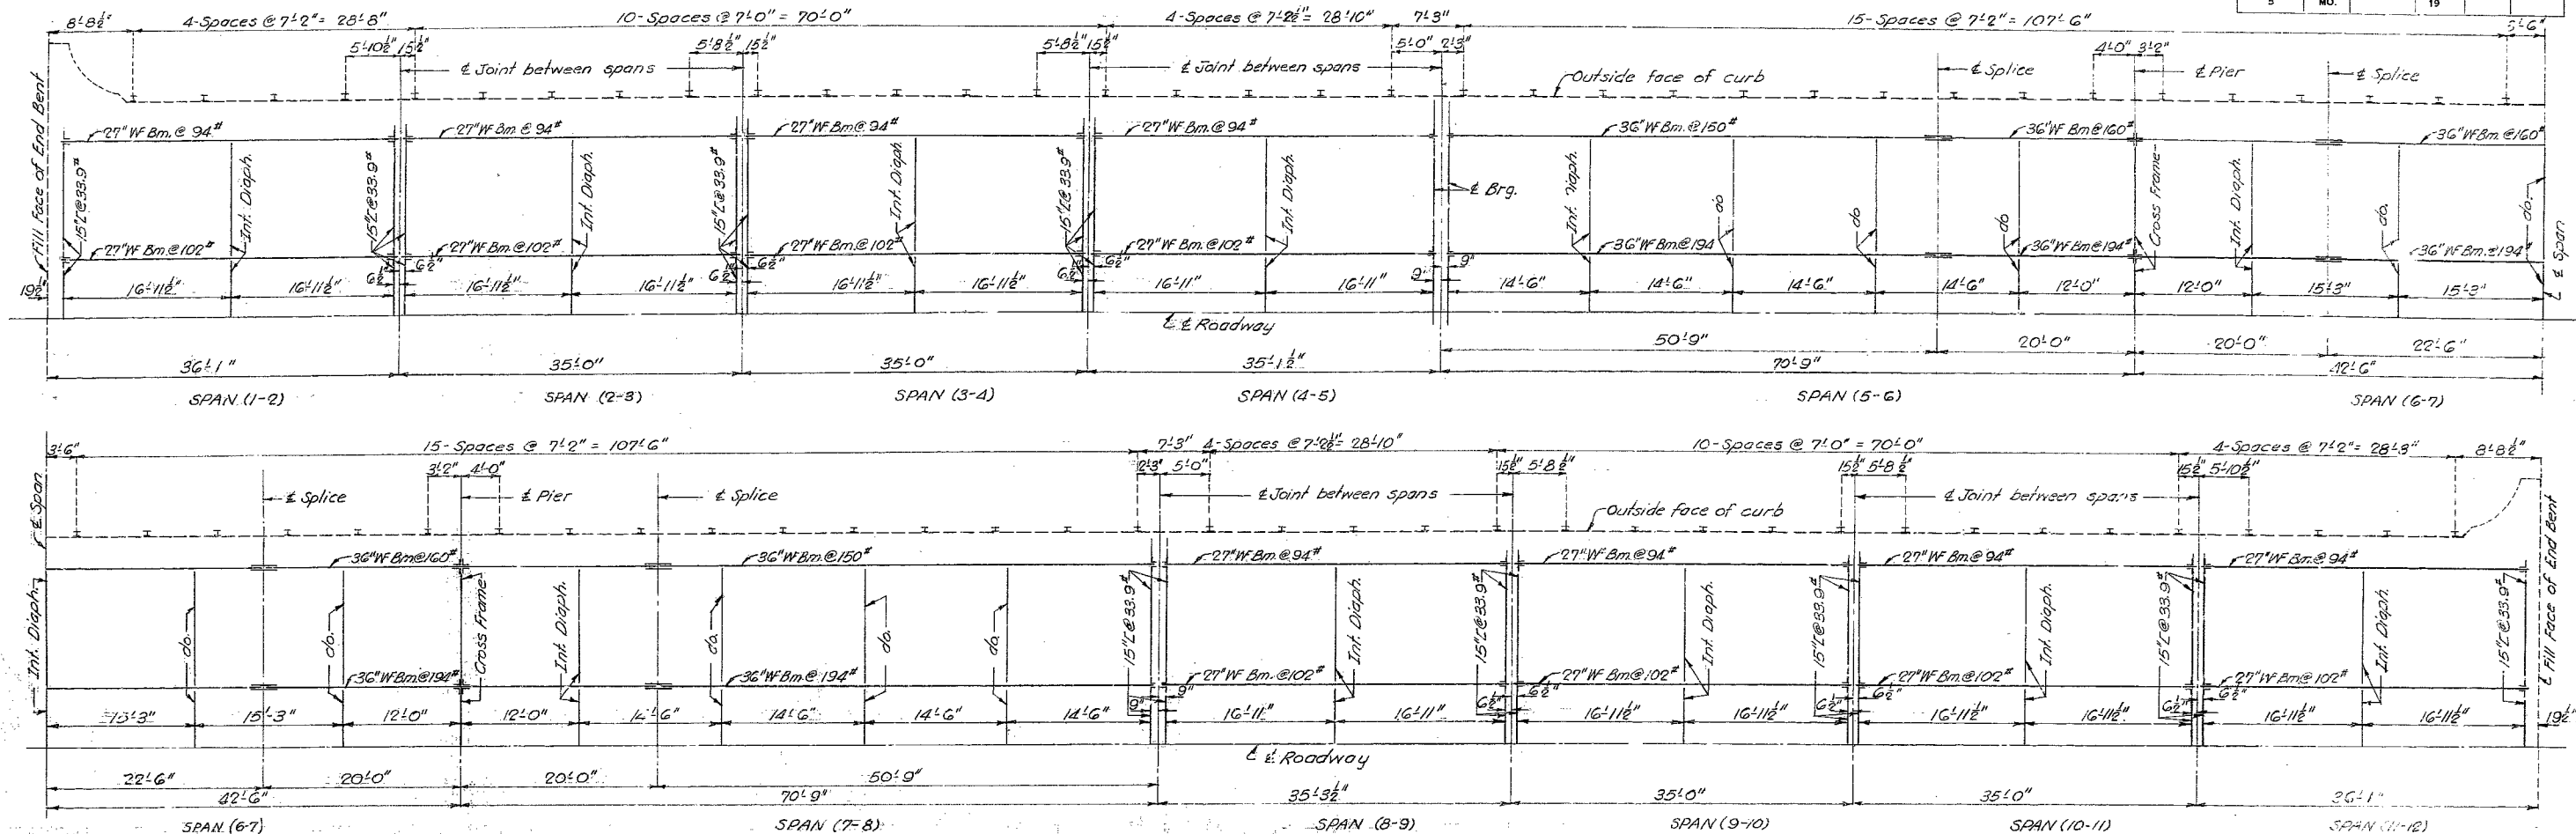 5 MO. 19
8'-8½" 4-Spaces @ 7'-2" = 28'-8" 10-Spaces @ 7'-0" = 70'-0" 4-Spaces @ 7'-2½" = 28'-10" 7'-3" 15-Spaces @ 7'-2" = 107'-6" 3'-6"
5'-10½" 15½" 5'-8½" 15½" 5'-8½" 15½" 5'-0" 2'-3" 4'-0" 3'-2"
℄ Joint between spans ℄ Joint between spans ℄ Splice ℄ Pier ℄ Splice
Outside face of curb
Fill Face of End Bent
27" WF Bm. @ 94# 27" WF Bm. @ 94# 27" WF Bm. @ 94# 27" WF Bm. @ 94# 36" WF Bm. @ 150# 36" WF Bm. @ 160# 36" WF Bm. @ 160#
15"[ @ 33.9# Int. Diaph. 15"[ @ 33.9# Int. Diaph. 15"[ @ 33.9# Int. Diaph. 15"[ @ 33.9# Int. Diaph. ℄ Brg. Int. Diaph. do do do Cross Frame Int. Diaph. do. do.
27" WF Bm. @ 102# 27" WF Bm. @ 102# 27" WF Bm. @ 102# 27" WF Bm. @ 102# 36" WF Bm. @ 194 36" WF Bm. @ 194# 36" WF Bm. @ 194#
6½" 6½" 6½" 6½" 6½" 6½" 9" 9"
19½" 16'-11½" 16'-11½" 16'-11½" 16'-11½" 16'-11½" 16'-11½" 16'-11" 16'-11" 14'-6" 14'-6" 14'-6" 14'-6" 12'-0" 12'-0" 15'-3" 15'-3"
℄ Span
℄ Roadway
50'-9" 20'-0" 20'-0" 22'-6"
36'-1" 35'-0" 35'-0" 35'-1½" 70'-9" 42'-6"
SPAN (1-2) SPAN (2-3) SPAN (3-4) SPAN (4-5) SPAN (5-6) SPAN (6-7)
3'-6" 15-Spaces @ 7'-2" = 107'-6" 7'-3" 4-Spaces @ 7'-2½" = 28'-10" 10-Spaces @ 7'-0" = 70'-0" 4-Spaces @ 7'-2" = 28'-8" 8'-8½"
3'-2" 4'-0" 2'-3" 5'-0" 15½" 5'-8½" 15½" 5'-8½" 15½" 5'-10½"
℄ Span ℄ Splice ℄ Pier ℄ Splice ℄ Joint between spans ℄ Joint between spans
Outside face of curb
36" WF Bm @ 160# 36" WF Bm. @ 150# 27" WF Bm. @ 94# 27" WF Bm. @ 94# 27" WF Bm. @ 94# 27" WF Bm. @ 94#
Int. Diaph. do. do. Cross Frame Int. Diaph. do. do. do. 15"[ @ 33.9# Int. Diaph. 15"[ @ 33.9# Int. Diaph. 15"[ @ 33.9# Int. Diaph. 15"[ @ 33.9# Int. Diaph. 15"[ @ 33.9# ℄ Fill Face of End Bent
36" WF Bm @ 194# 36" WF Bm. @ 194# 27" WF Bm. @ 102# 27" WF Bm. @ 102# 27" WF Bm. @ 102# 27" WF Bm. @ 102#
9" 9" 6½" 6½" 6½" 6½" 6½" 6½"
15'-3" 15'-3" 12'-0" 12'-0" 14'-6" 14'-6" 14'-6" 14'-6" 16'-11" 16'-11" 16'-11½" 16'-11½" 16'-11½" 16'-11½" 16'-11½" 16'-11½" 19½"
℄ Roadway
22'-6" 20'-0" 20'-0" 50'-9"
42'-6" 70'-9" 35'-3½" 35'-0" 35'-0" 36'-1"
SPAN (6-7) SPAN (7-8) SPAN (8-9) SPAN (9-10) SPAN (10-11) SPAN (11-12)